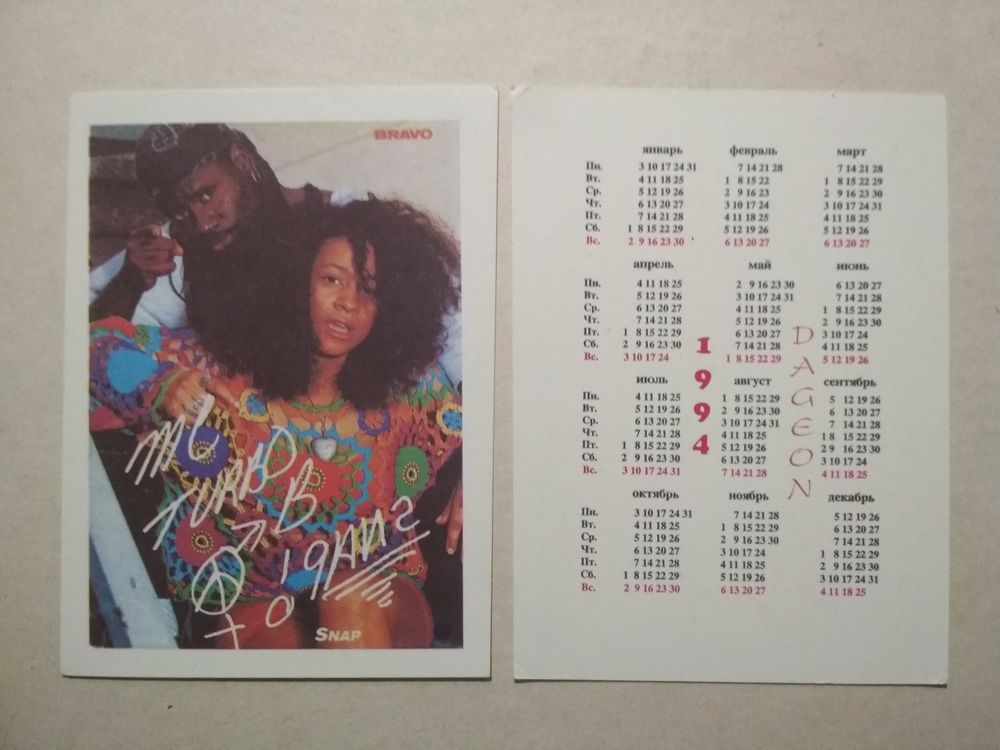 BRAVO
MC
TURBO
B
SNAP
январь февраль март
Пн. 3 10 17 24 31 7 14 21 28 7 14 21 28
Вт. 4 11 18 25 1 8 15 22 1 8 15 22 29
Ср. 5 12 19 26 2 9 16 23 2 9 16 23 30
Чт. 6 13 20 27 3 10 17 24 3 10 17 24 31
Пт. 7 14 21 28 4 11 18 25 4 11 18 25
Сб. 1 8 15 22 29 5 12 19 26 5 12 19 26
Вс. 2 9 16 23 30 6 13 20 27 6 13 20 27
апрель май июнь
Пн. 4 11 18 25 2 9 16 23 30 6 13 20 27
Вт. 5 12 19 26 3 10 17 24 31 7 14 21 28
Ср. 6 13 20 27 4 11 18 25 1 8 15 22 29
Чт. 7 14 21 28 5 12 19 26 2 9 16 23 30
Пт. 1 8 15 22 29 6 13 20 27 3 10 17 24
Сб. 2 9 16 23 30 7 14 21 28 4 11 18 25
Вс. 3 10 17 24 1 8 15 22 29 5 12 19 26
1994
DAGEON
июль август сентябрь
Пн. 4 11 18 25 1 8 15 22 29 5 12 19 26
Вт. 5 12 19 26 2 9 16 23 30 6 13 20 27
Ср. 6 13 20 27 3 10 17 24 31 7 14 21 28
Чт. 7 14 21 28 4 11 18 25 1 8 15 22 29
Пт. 1 8 15 22 29 5 12 19 26 2 9 16 23 30
Сб. 2 9 16 23 30 6 13 20 27 3 10 17 24
Вс. 3 10 17 24 31 7 14 21 28 4 11 18 25
октябрь ноябрь декабрь
Пн. 3 10 17 24 31 7 14 21 28 5 12 19 26
Вт. 4 11 18 25 1 8 15 22 29 6 13 20 27
Ср. 5 12 19 26 2 9 16 23 30 7 14 21 28
Чт. 6 13 20 27 3 10 17 24 1 8 15 22 29
Пт. 7 14 21 28 4 11 18 25 2 9 16 23 30
Сб. 1 8 15 22 29 5 12 19 26 3 10 17 24 31
Вс. 2 9 16 23 30 6 13 20 27 4 11 18 25